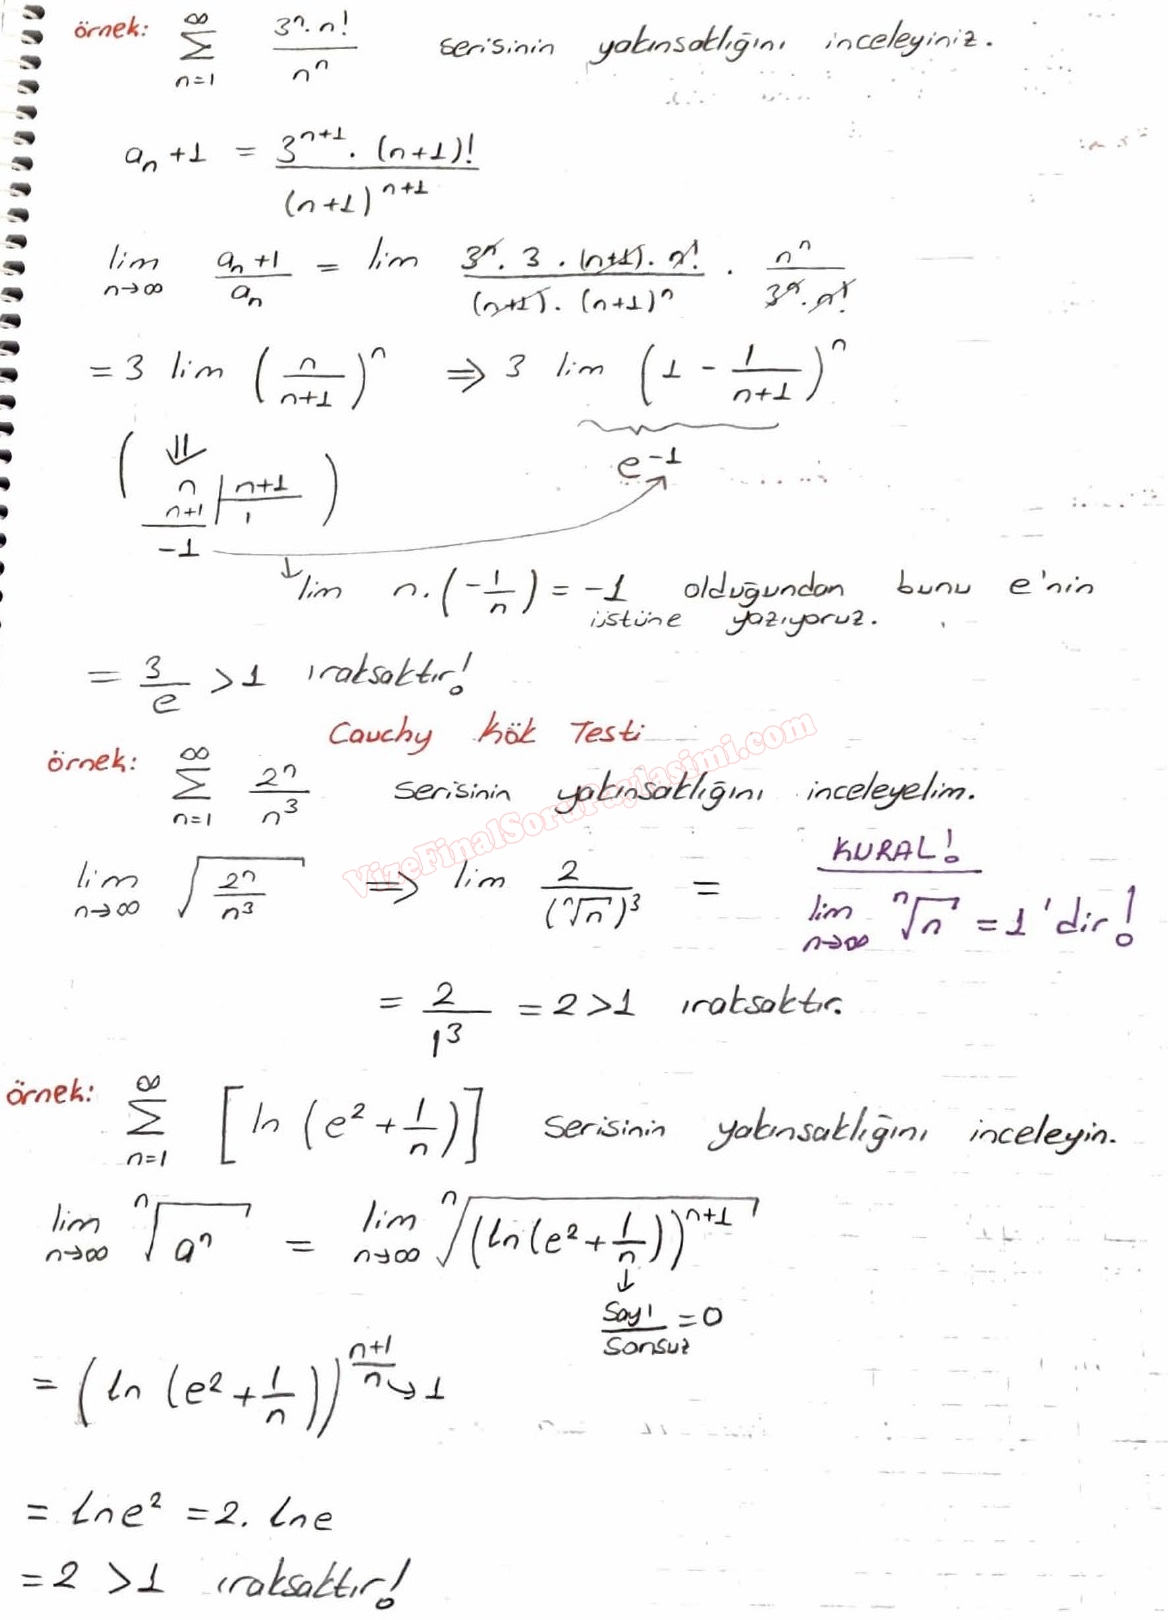 örnek: ∞ Σ n=1 3ⁿ.n! / nⁿ serisinin yakınsaklığını inceleyiniz.
aₙ+1 = 3ⁿ⁺¹ . (n+1)! / (n+1)ⁿ⁺¹
lim n→∞ aₙ+1 / aₙ = lim 3ⁿ. 3 . (n+1). n! / (n+1). (n+1)ⁿ . nⁿ / 3ⁿ.n!
= 3 lim (n / n+1)ⁿ ⇒ 3 lim (1 - 1 / n+1)ⁿ
e⁻¹
( ⇓ n | n+1 )
n+1 | 1
-1
lim n.(-1/n) = -1 olduğundan bunu e'nin
üstüne yazıyoruz.
= 3/e > 1 ıraksaktır!
Cauchy Kök Testi
örnek: ∞ Σ n=1 2ⁿ / n³ serisinin yakınsaklığını inceleyelim.
VizeFinalSoruPaylasimi.com
KURAL!
lim n→∞ √(2ⁿ / n³) ⇒ lim 2 / (ⁿ√n)³ = lim n→∞ ⁿ√n = 1'dir!
= 2 / 1³ = 2 > 1 ıraksaktır.
örnek: ∞ Σ n=1 [ln (e² + 1/n)] serisinin yakınsaklığını inceleyin.
lim n→∞ ⁿ√aⁿ = lim n→∞ ⁿ√(ln(e² + 1/n))ⁿ⁺¹
↓
Sayı / Sonsuz = 0
= (ln (e² + 1/n)) n+1 / n → 1
= lne² = 2. lne
= 2 > 1 ıraksaktır!